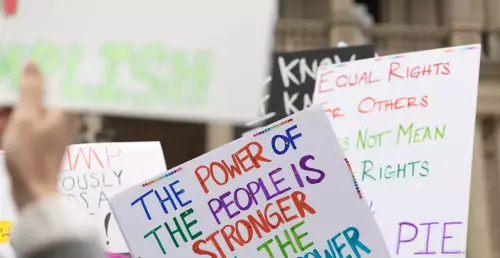 PLISH
I KNOW
KN
EQUAL RIGHTS
FOR OTHERS
S NOT MEAN
RIGHTS
PIE
UMP
OUSLY
S A
!
THE POWER OF
THE PEOPLE IS
STRONGER
THE
POWER